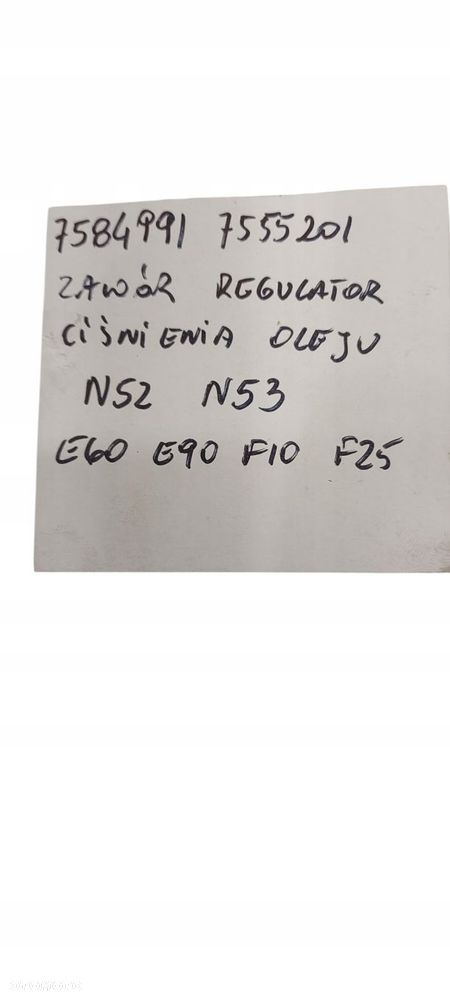 7584991 7555201
ZAWÓR REGULATOR
CIŚNIENIA OLEJU
N52 N53
E60 E90 F10 F25